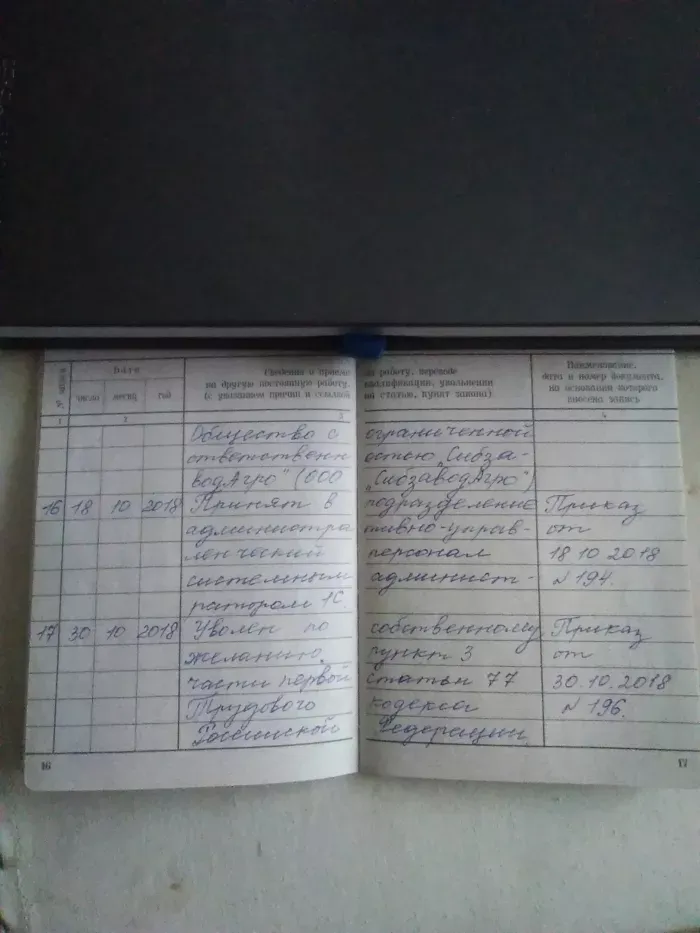 № записи
Дата
число
месяц
год
Сведения о приеме на работу, переводе
на другую постоянную работу, квалификации, увольнении
(с указанием причин и ссылкой на статью, пункт закона)
Наименование,
дата и номер документа,
на основании которого
внесена запись
1 2 3 4
Общество с ограниченной
ответственн остью „Сибза-
водАгро" (ООО „СибзаводАгро")
16 18 10 2018 Принят в подразделение Приказ
администра тивно-управ- от
ленческий персонал 18 10 2018
системным админист- № 194.
ратором 1С.
17 30 10 2018 Уволен по собственному Приказ
желанию, пункт 3 от
части первой статьи 77 30.10.2018
Трудового кодекса № 196.
Российской Федерации
16
17